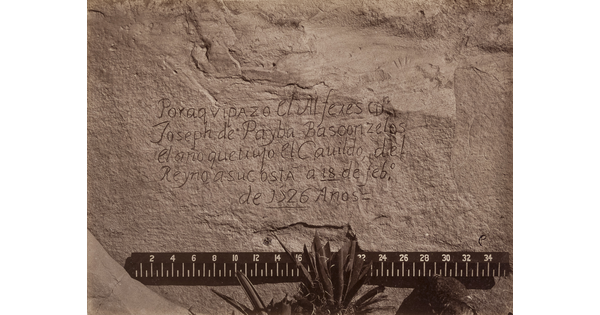 Por aqvi pazo el Alferes Dn
Joseph de Payba Basconzelos
el año que trujo el Cauildo del
Reyno a su costa a 18 de febo
de 1526 Años
2 4 6 8 10 12 14 16 22 24 26 28 30 32 34